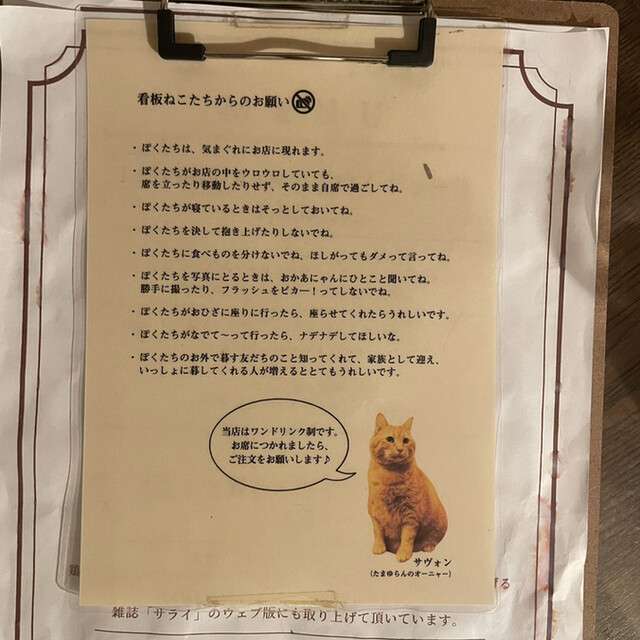 看板ねこたちからのお願い
・ぼくたちは、気まぐれにお店に現れます。
・ぼくたちがお店の中をウロウロしていても、
席を立ったり移動したりせず、そのまま自席で過ごしてね。
・ぼくたちが寝ているときはそっとしておいてね。
・ぼくたちを決して抱き上げたりしないでね。
・ぼくたちに食べものを分けないでね。ほしがってもダメって言ってね。
・ぼくたちを写真にとるときは、おかあにゃんにひとこと聞いてね。
勝手に撮ったり、フラッシュをピカー！ってしないでね。
・ぼくたちがおひざに座りに行ったら、座らせてくれたらうれしいです。
・ぼくたちがなでて〜って行ったら、ナデナデしてほしいな。
・ぼくたちのお外で暮す友だちのこと知ってくれて、家族として迎え、
いっしょに暮してくれる人が増えるととてもうれしいです。
当店はワンドリンク制です。
お席につかれましたら、
ご注文をお願いします♪
サヴォン
(たまゆらんのオーニャー)
雑誌「サライ」のウェブ版にも取り上げて頂いています。